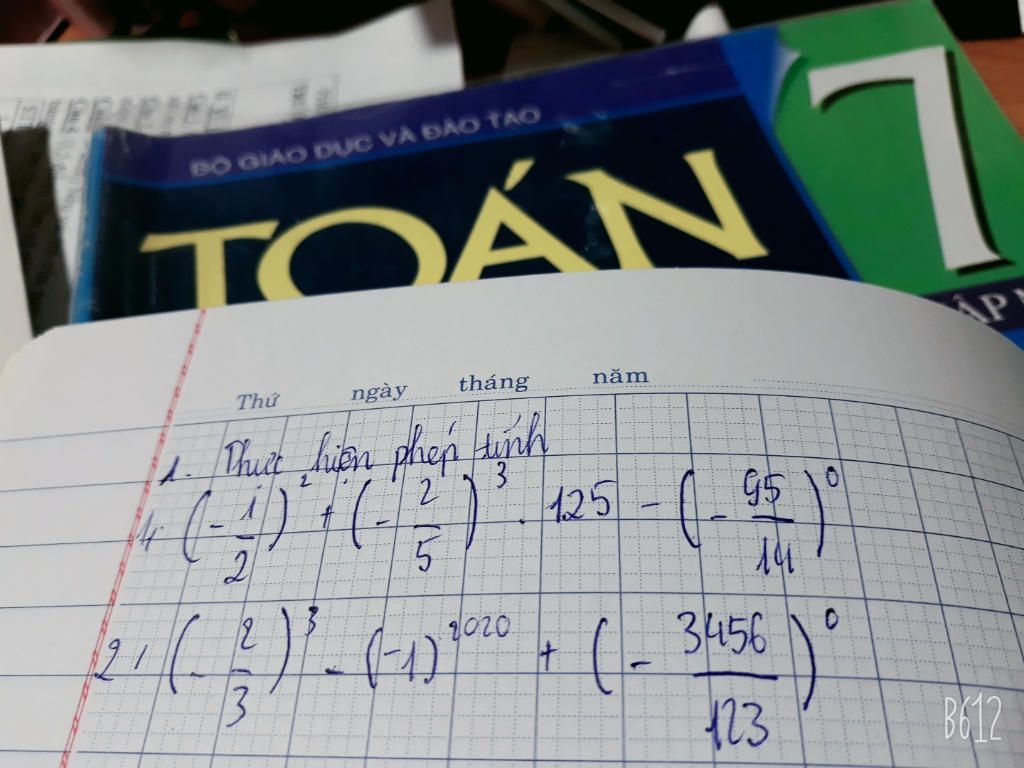 BỘ GIÁO DỤC VÀ ĐÀO TẠO
TOÁN 7
ẬP
Thứ ngày tháng năm
1. Thực hiện phép tính
1. (-1/2)² + (-2/5)³ . 125 - (-95/14)⁰
2, (-2/3)³ - (-1)²⁰²⁰ + (-3456/123)⁰
B612